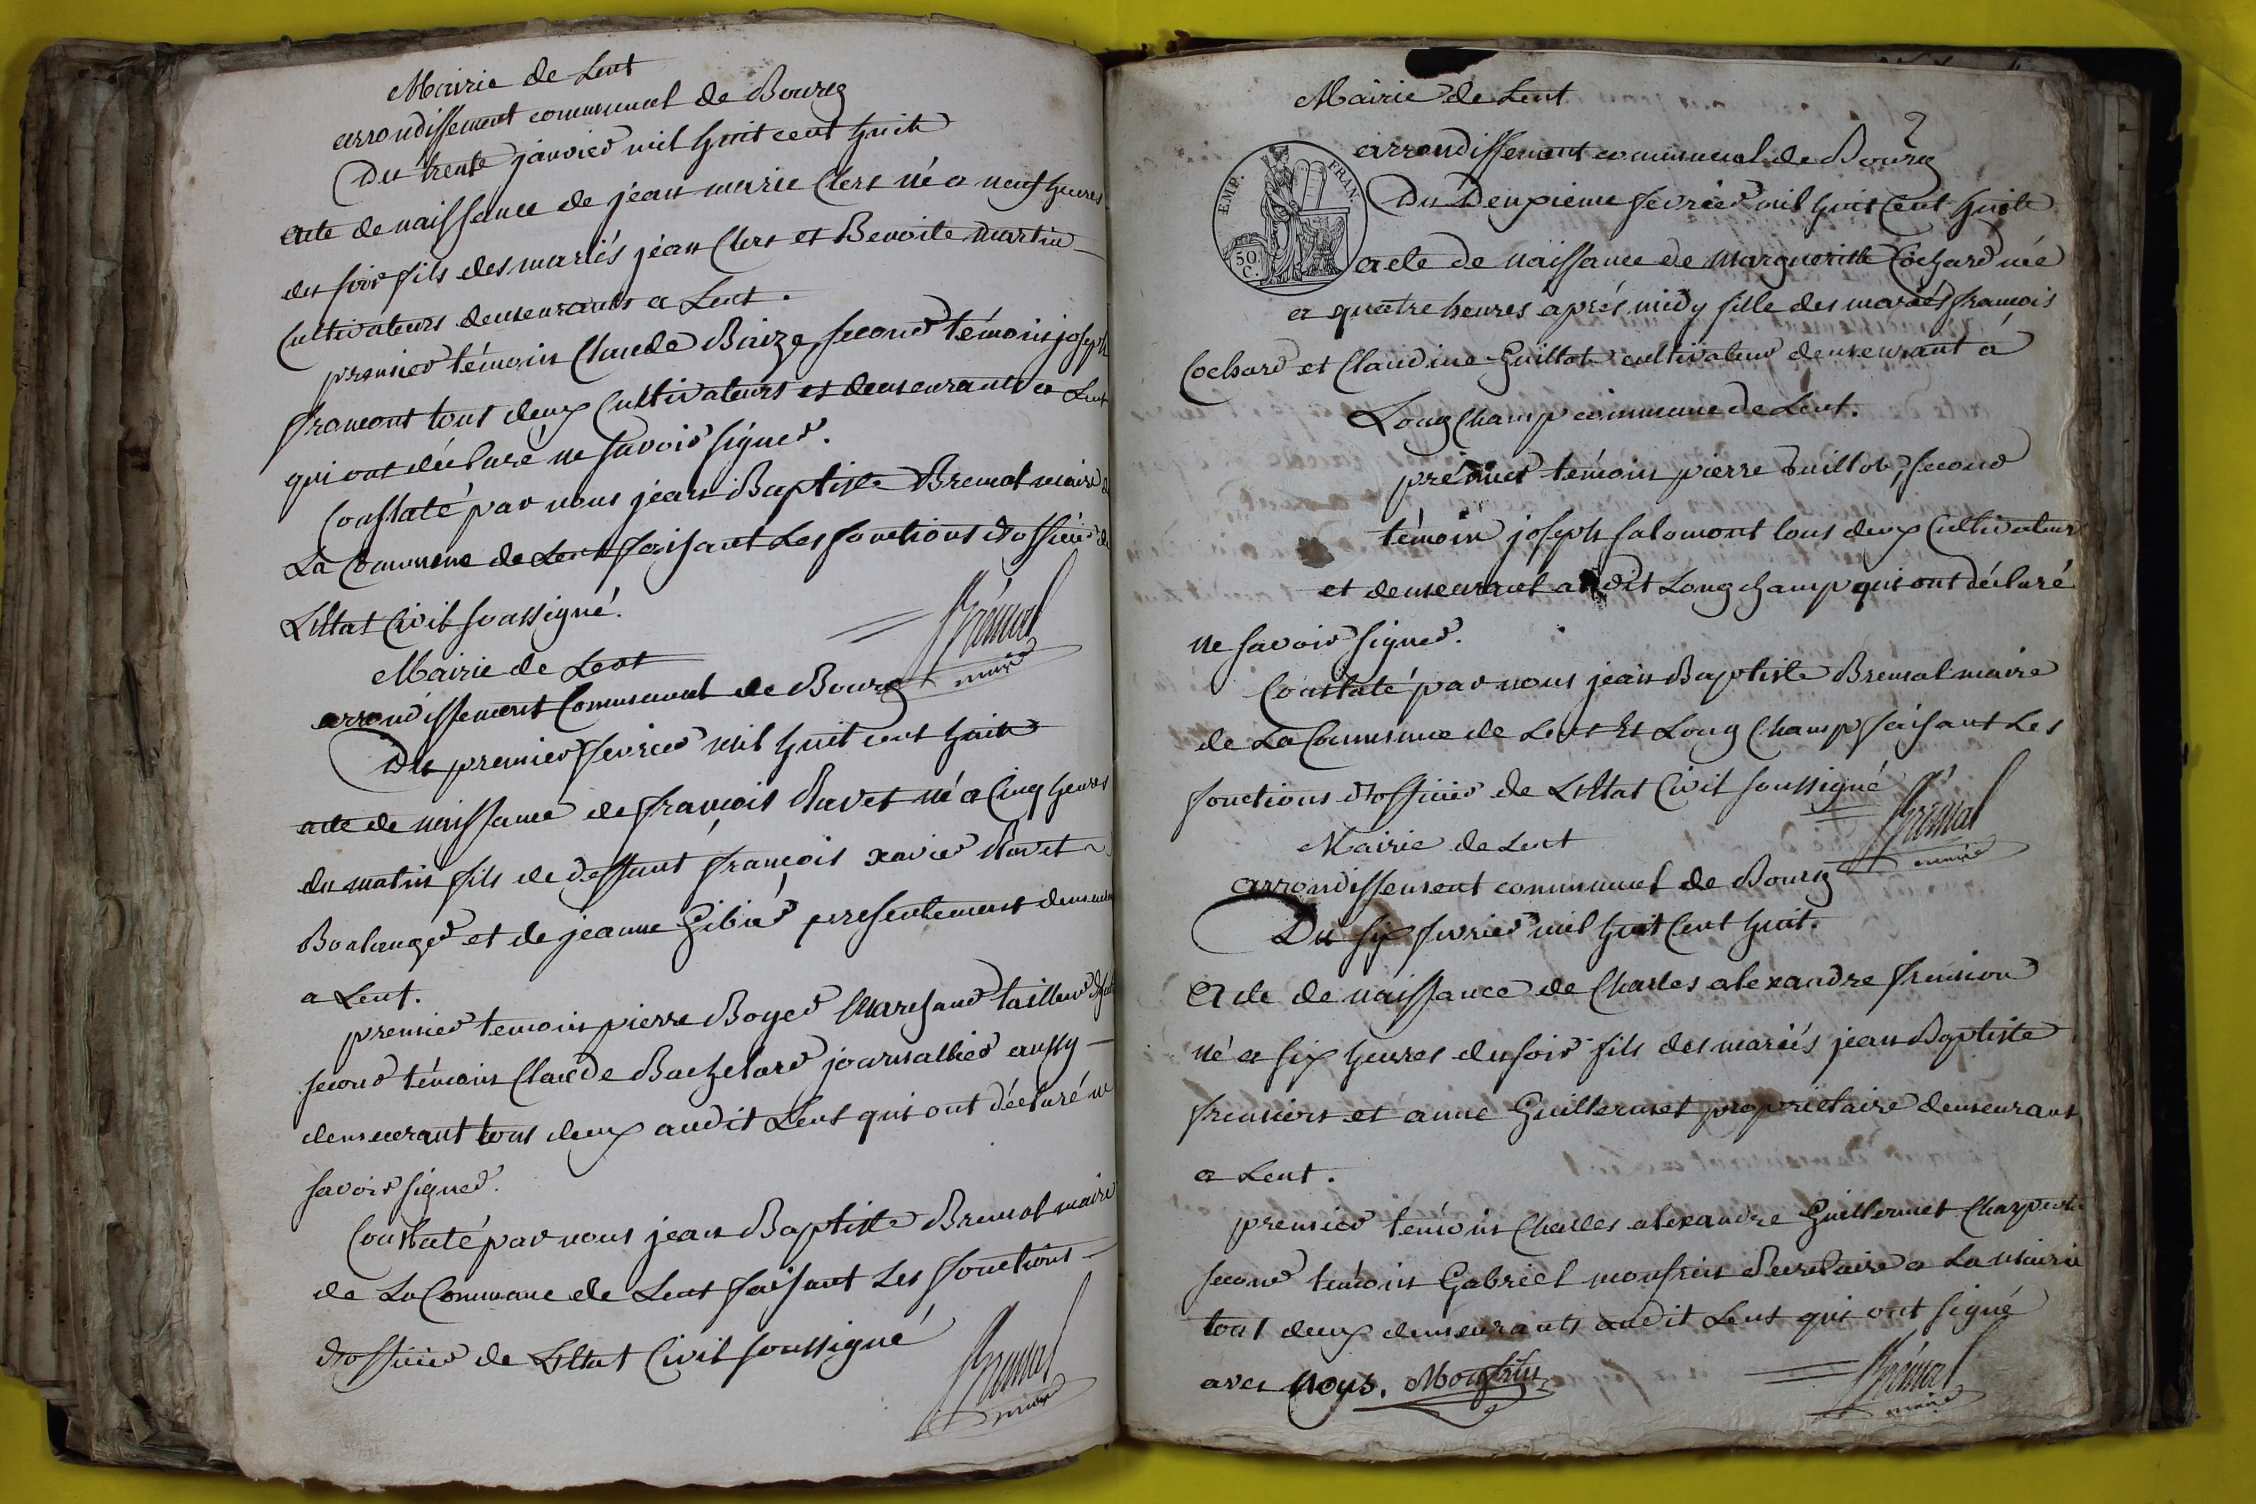 Mairie de Lent
arrondissement communal de Bourg
Du trente janvier mil huit cent huit
acte de naissance de jean marie Clerc né a neuf heures
du soir fils des mariés jean Clerc et Benoite Martin
Cultivateurs demeurants a Lent.
premier témoin Claude Baize, second témoin joseph
framont tout deux Cultivateurs et demeurants a Lent
qui ont déclaré ne savoir signer.
Constaté par nous jean Baptiste Bremal maire de
La Commune de Lent faisant Les fonctions d'officier de
L'Etat Civil soussigné.
Brémal
maire
Mairie de Lent
arrondissement Communal de Bourg
Du premier fevrier mil huit cent huit
acte de naissance de françois Ravet né a Cinq heures
du matin fils de deffunt françois xavier Ravet
Boulanger et de jeanne Gibié presentement
a Lent.
premier temoin pierre Boyer Marchand tailleur
second témoin Claude Bachelard journallier aussy
demeurant tous deux audit Lent qui ont déclaré ne
savoir signer.
Constaté par nous jean Baptiste Bremal maire
de La Commune de Lent faisant Les fonctions
d'officier de L'Etat Civil soussigné
Brémal
maire
Mairie de Lent
2
EMP. FRAN.
50 C.
arrondissement communal de Bourg
Du Deuxieme fevrier mil huit Cent huit
acte de naissance de Marguerite Cochard née
a quatre heures après midy fille des mariés françois
Cochard et Claudine Guillot cultivateur demeurant à
Long Champ commune de Lent.
premier témoin pierre Guillot, second
témoin joseph Salomont tous deux Cultivateurs
et demeurant audit Long champ qui ont déclaré
ne savoir signer.
Constaté par nous jean Baptiste Bremal maire
de La Commune de Lent Et Long Champ faisant Les
fonctions d'officier de L'Etat Civil soussigné
Brémal
maire
Mairie de Lent
arrondissement communal de Bourg
Du six fevrier mil huit Cent huit.
Acte de naissance de Charles alexandre fremion
né a six heures du soir fils des mariés jean Baptiste
fremion et anne Guillermet propriétaire demeurant
a Lent.
premier temoin Charles alexandre Guillermet
second temoin Gabriel monfrin Secretaire a La mairie
tous deux demeurants audit Lent qui ont signé
avec nous. Monfrin
Brémal
maire